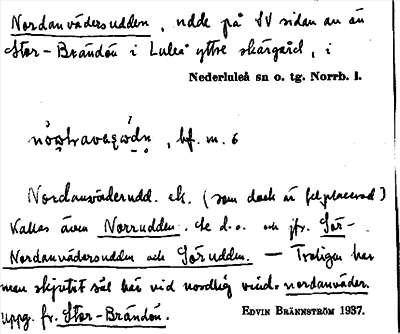 Nordanvädersudden, udde på SV sidan av ön
Stor-Brändön i Luleå yttre skärgård, i
Nederluleå sn o. tg. Norrb. l.
, bf. m. 6
Nordanväderudd. ek. (som dock är felplacerad)
Kallas även Norrudden. Se d.o. och jfr. Sör-
Nordanvädersudden och Sörudden. — Troligen har
man skjutit säl här vid nordlig vind. nordanväder.
Uppg. fr. Stor-Brändön. EDVIN BRÄNNSTRÖM 1937.